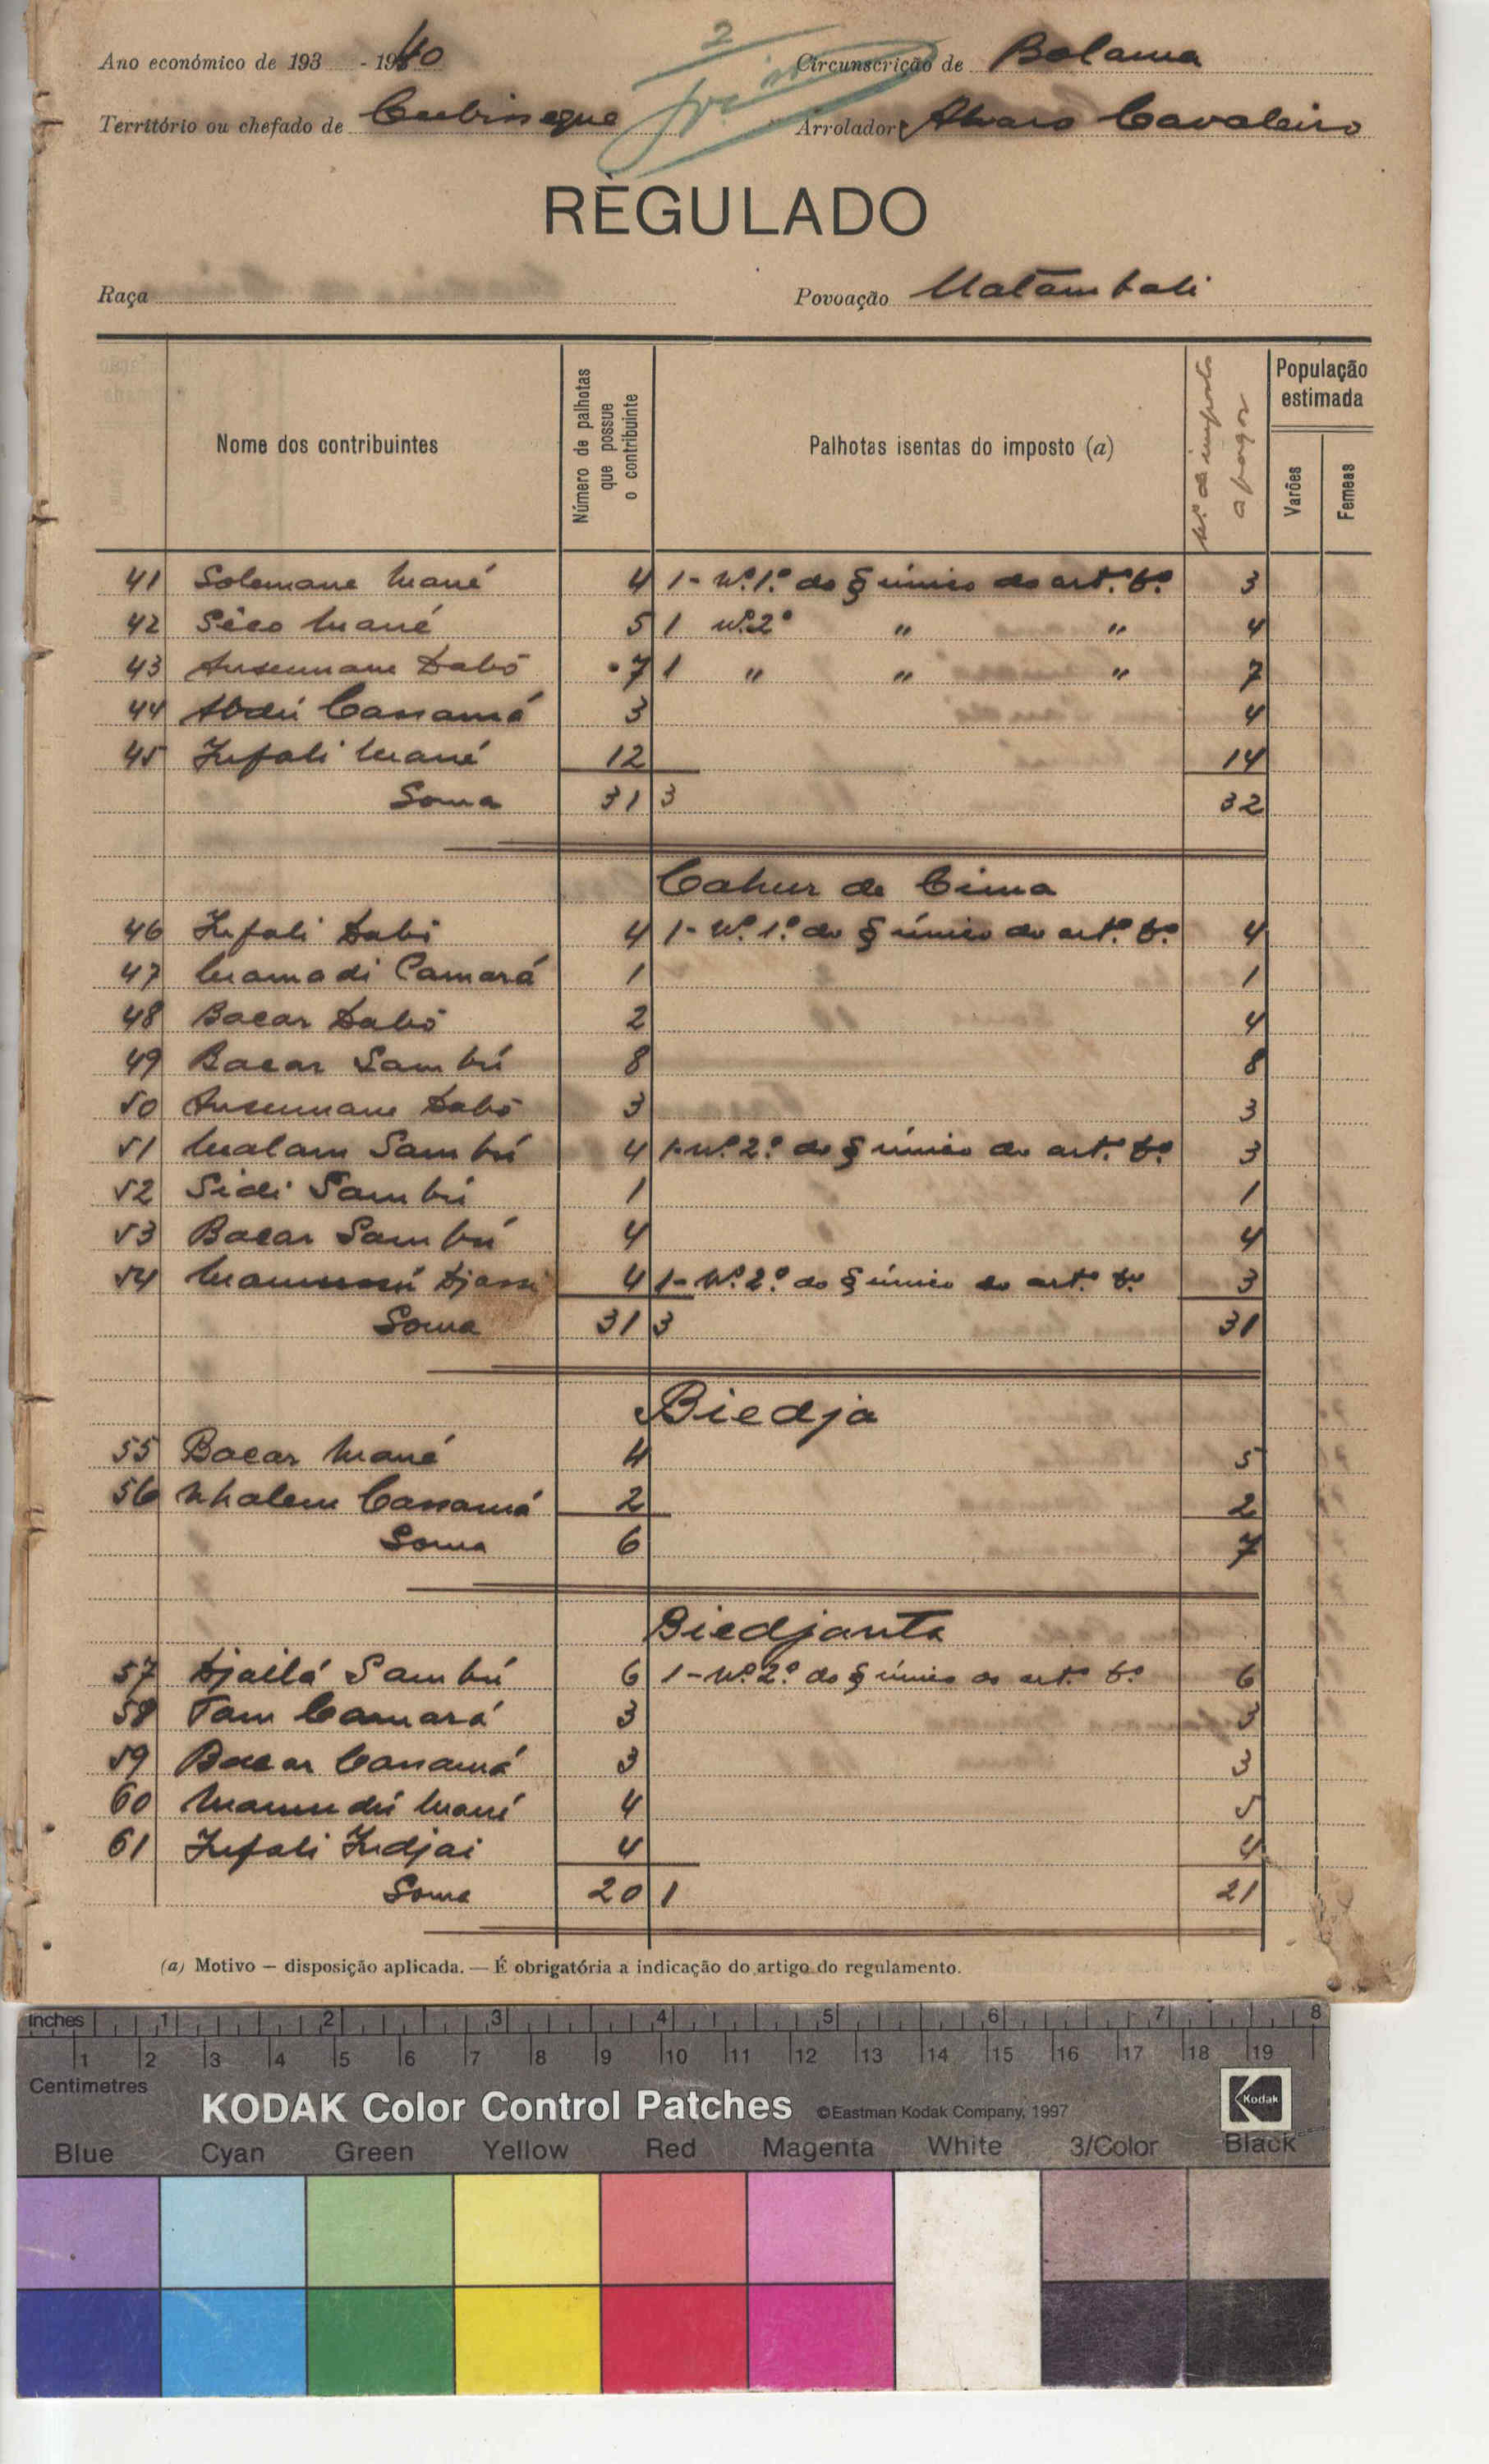 2
visto
Ano económico de 193 - 1940 Circunscrição de Bolama
Território ou chefado de Cubisseque Arrolador Alvaro Cavaleiro
REGULADO
Raça Povoação Matambali
Nome dos contribuintes Número de palhotas que possue o contribuinte Palhotas isentas do imposto (a) N.º de impostos a pagar População estimada Varões Femeas
41 Solemane Mané 4 1- Nº.1.º do § único do artº. 6º. 3
42 Sêco Mané 5 1 Nº.2º " " 4
43 Ansumane Dabó 7 1 " " " 7
44 Abdú Cassamá 3 4
45 Infali Mané 12 14
Soma 31 3 32
Cahur de Cima
46 Infali Dabó 4 1- Nº. 1.º do § único do artº. 6º. 4
47 Mamadi Camará 1 1
48 Bacar Dabó 2 4
49 Bacar Sambú 8 8
50 Ansumane Dabó 3 3
51 Malam Sambú 4 1-Nº. 2.º do § único do artº. 6º. 3
52 Sidi Sambú 1 1
53 Bacar Sambú 4 4
54 Djassi 4 1- Nº. 2.º do § único do artº. 6º. 3
Soma 31 3 31
Biedja
55 Bacar Mané 4 5
56 Nhalem Cassamá 2 2
Soma 6 7
Biedjanta
57 Djailá Sambú 6 1-Nº.2.º do § único do artº. 6º. 6
58 Fam Camará 3 3
59 Bacar Cassamá 3 3
60 Mamudú Mané 4 5
61 Infali Indjai 4 4
Soma 20 1 21
(a) Motivo — disposição aplicada. — É obrigatória a indicação do artigo do regulamento.
inches 1 2 3 4 5 6 7 8
1 2 3 4 5 6 7 8 9 10 11 12 13 14 15 16 17 18 19
Centimetres
KODAK Color Control Patches ©Eastman Kodak Company, 1997 Kodak
Blue Cyan Green Yellow Red Magenta White 3/Color Black